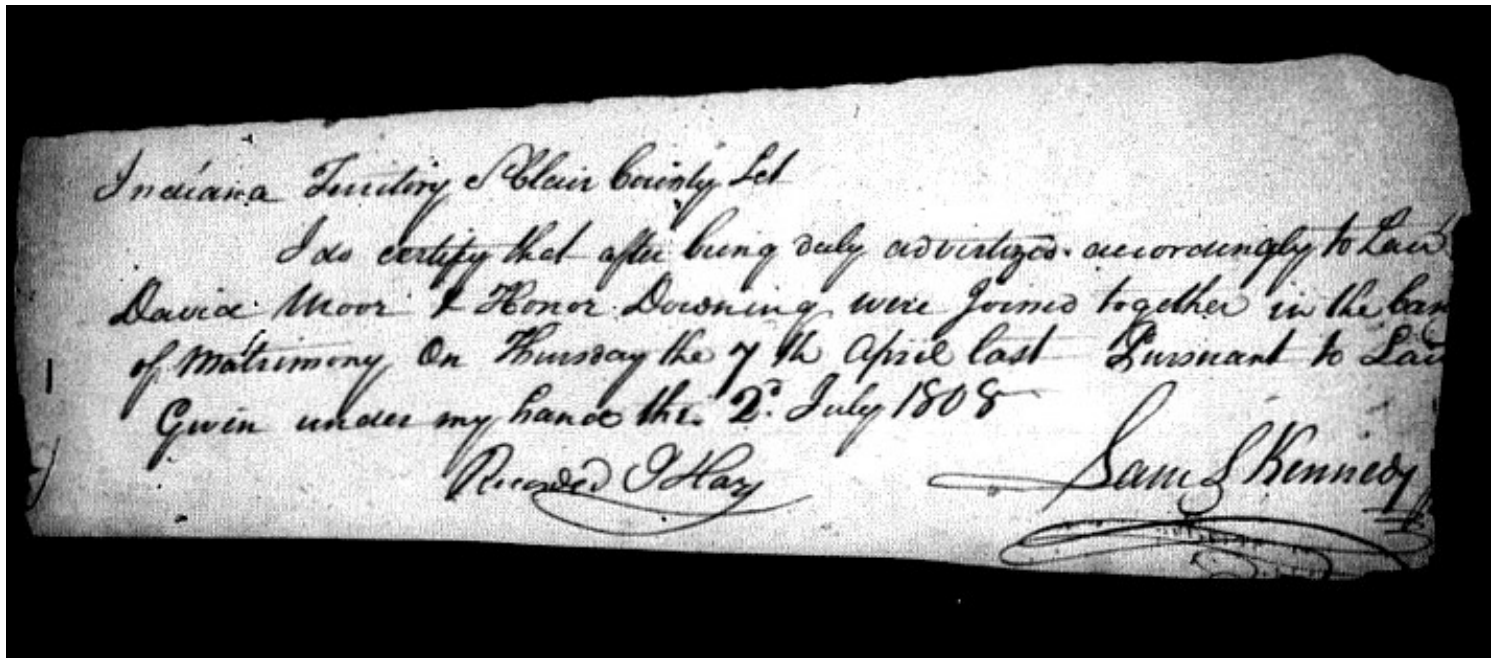 Indiana Territory St Clair County Sct
I do certify that after being duly advertized accordingly to Law
David Moor & Honor Downing were Joined together in the ban
of Matrimony On Thursday the 7 th April last Pursuant to Law
Givin under my hand the 2d July 1808
Recorded J Hay
Saml Kennedy